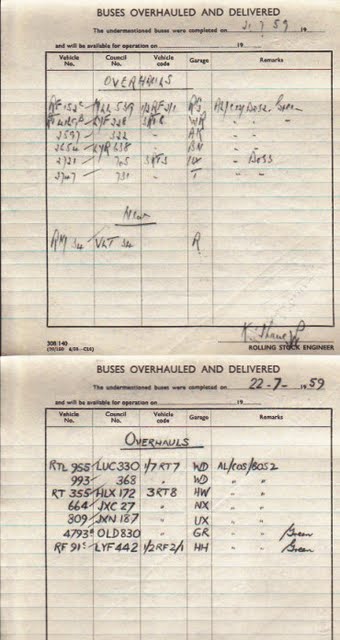 BUSES OVERHAULED AND DELIVERED
The undermentioned buses were completed on 21.7.59
and will be available for operation on 19
Vehicle No. Council No. Vehicle code Garage Remarks
OVERHAULS
RF 152 MLL 539 1/2RF2/1 Green
LYF 226 WR "
2597 322 " AK "
2654 LYR 638 " "
2721 705 3RT3 " BOSS
2747 731 " T "
New
RM 34 VLT 34 R
308/140
ROLLING STOCK ENGINEER
BUSES OVERHAULED AND DELIVERED
The undermentioned buses were completed on 22-7- 1959
and will be available for operation on 19
Vehicle No. Council No. Vehicle code Garage Remarks
OVERHAULS
RTL 955 LUC330 1/7RT7 WD AL/COS/BOS2
993 368 " WD " "
RT 355 HLX 172 3RT8 HW " "
664 JXC 27 " NX " "
809 JXN 187 " UX " "
4793 OLD830 " GR " Green
RF 91 LYF442 1/2RF2/1 HH " Green